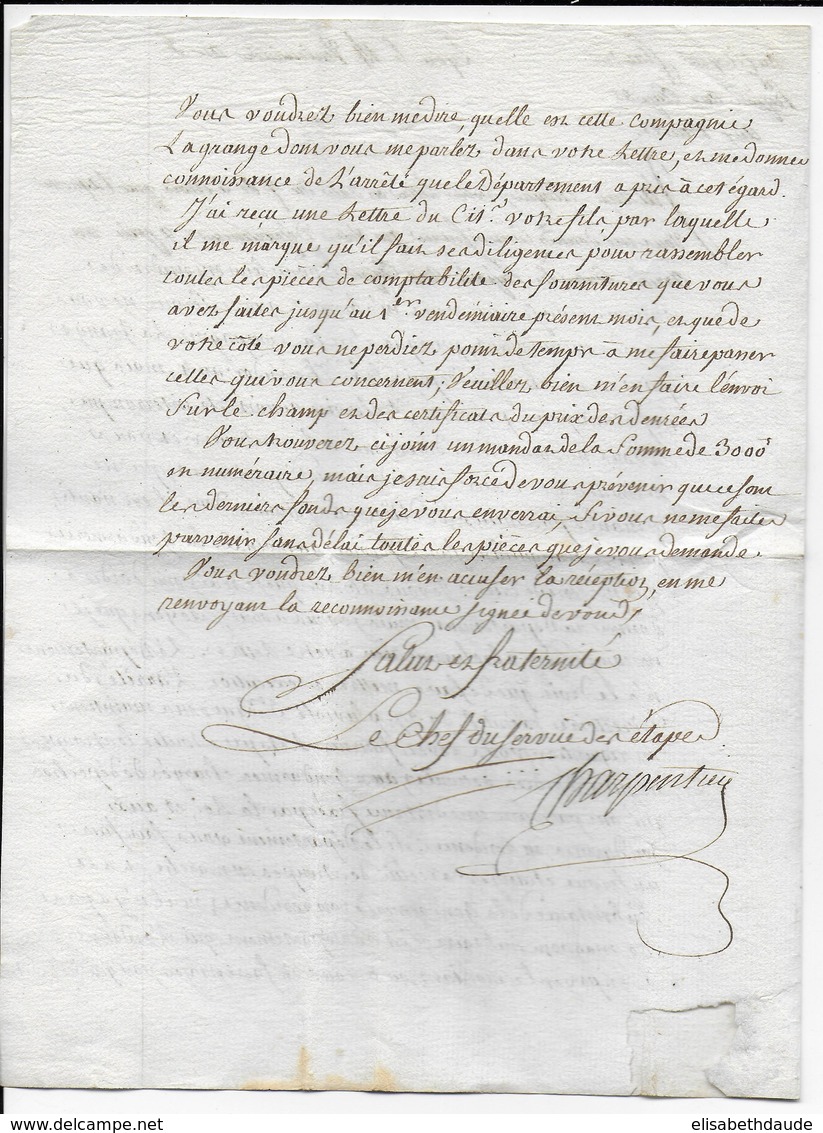 Vous voudrez bien me dire, quelle est cette compagnie
Lagrange dont vous me parlez dans votre Lettre, et me donner
connoissance de L'arrêté que le Département a pris à cet égard.
J'ai reçu une Lettre du Cit. votre fils, par laquelle
il me marque qu'il fait ses diligences pour rassembler
toutes les pièces de comptabilité des fournitures que vous
avez faites jusqu'au 1er vendémiaire présent mois, et que de
votre côté vous ne perdiez point de temps à me faire passer
celles qui vous concernent; Veuillez bien m'en faire l'envoi
Sur le champ et des certificats du prix des denrées
Vous trouverez ci joint un mandat de la Somme de 3000
en numéraire, mais je suis forcé de vous prévenir que ce sont
les derniers fonds que je vous enverrai, Si vous ne me faites
parvenir sans délai toutes les pièces que je vous demande.
Vous voudrez bien m'en accuser la réception, en me
renvoyant la reconnoissance signée de vous,
Salut et fraternité
Le Chef du service des étapes
Charpentier
elisabethdaude